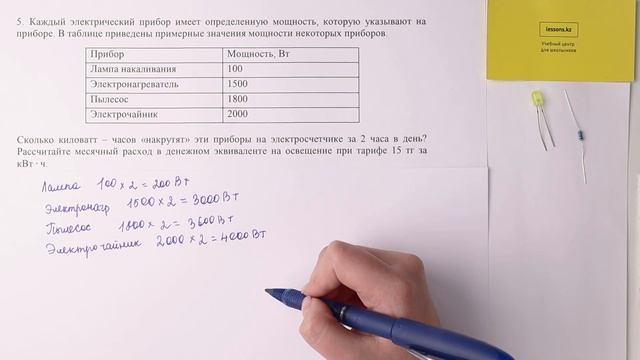 5. Каждый электрический прибор имеет определенную мощность, которую указывают на
приборе. В таблице приведены примерные значения мощности некоторых приборов.
Прибор Мощность, Вт
Лампа накаливания 100
Электронагреватель 1500
Пылесос 1800
Электрочайник 2000
Сколько киловатт – часов «накрутят» эти приборы на электросчетчике за 2 часа в день?
Рассчитайте месячный расход в денежном эквиваленте на освещение при тарифе 15 тг за
кВт · ч.
Лампа 100 × 2 = 200 Вт
Электронагр 1500 × 2 = 3000 Вт
Пылесос 1800 × 2 = 3600 Вт
Электрочайник 2000 × 2 = 4000 Вт
lessons.kz
Учебный центр
для школьников